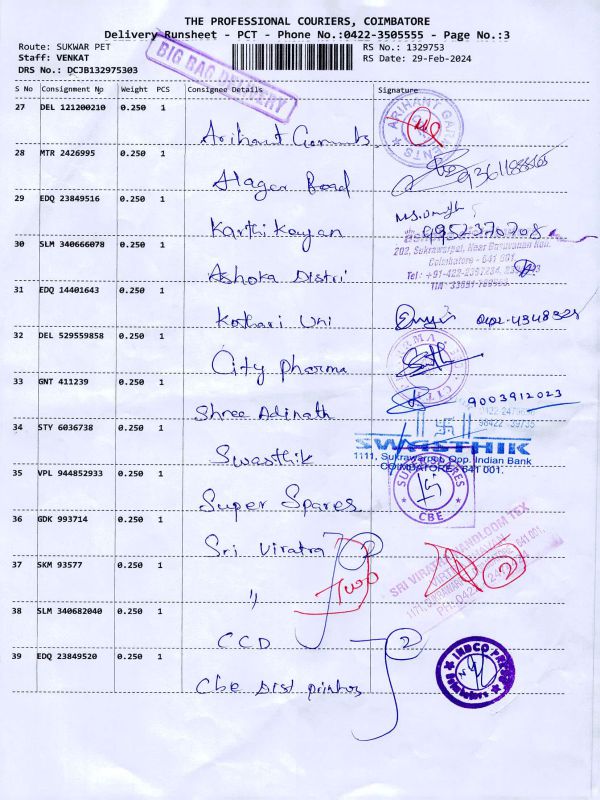 THE PROFESSIONAL COURIERS, COIMBATORE
Delivery Runsheet - PCT - Phone No.:0422-3505555 - Page No.:3
Route: SUKWAR PET
RS No.: 1329753
Staff: VENKAT
RS Date: 29-Feb-2024
DRS No.: DCJB132975303
BIG BAG DELIVERY
S No Consignment Np Weight PCS Consignee Details Signature
27 DEL 121200210 0.250 1 Arihant Garments
ARIHANT GARMENTS
28 MTR 2426995 0.250 1 Alagar Road
29 EDQ 23849516 0.250 1 Karthikeyan
9952370708
30 SLM 340666078 0.250 1 Ashoka Distri
202, Sukrawarpet, Near Basuvanan Koil.
Coimbatore - 641 001.
31 EDQ 14401643 0.250 1 Kothari Uni 0422-4348325
32 DEL 529559858 0.250 1 City Pharma
33 GNT 411239 0.250 1 Shree Adinath 9003912023
34 STY 6036738 0.250 1 Swasthik
SWASTHIK
1111, Sukrawarpet, Opp. Indian Bank
COIMBATORE - 641 001.
35 VPL 944852933 0.250 1 Super Spares
SUPER SPARES
CBE
36 GDK 993714 0.250 1 Sri Viratra 2
SRI VIRATRA HANDLOOM TEX
37 SKM 93577 0.250 1 " Two 2
38 SLM 340682040 0.250 1 CCD 2
39 EDQ 23849520 0.250 1 Cbe Dist printers
INDCO PRESS
Coimbatore